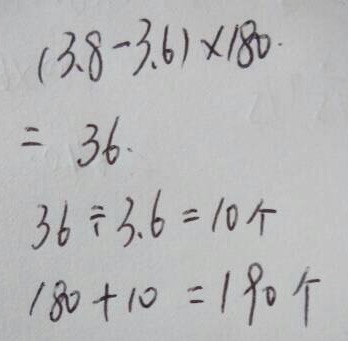 (3.8-3.6)×180.
= 36.
36÷3.6=10个
180+10=190个